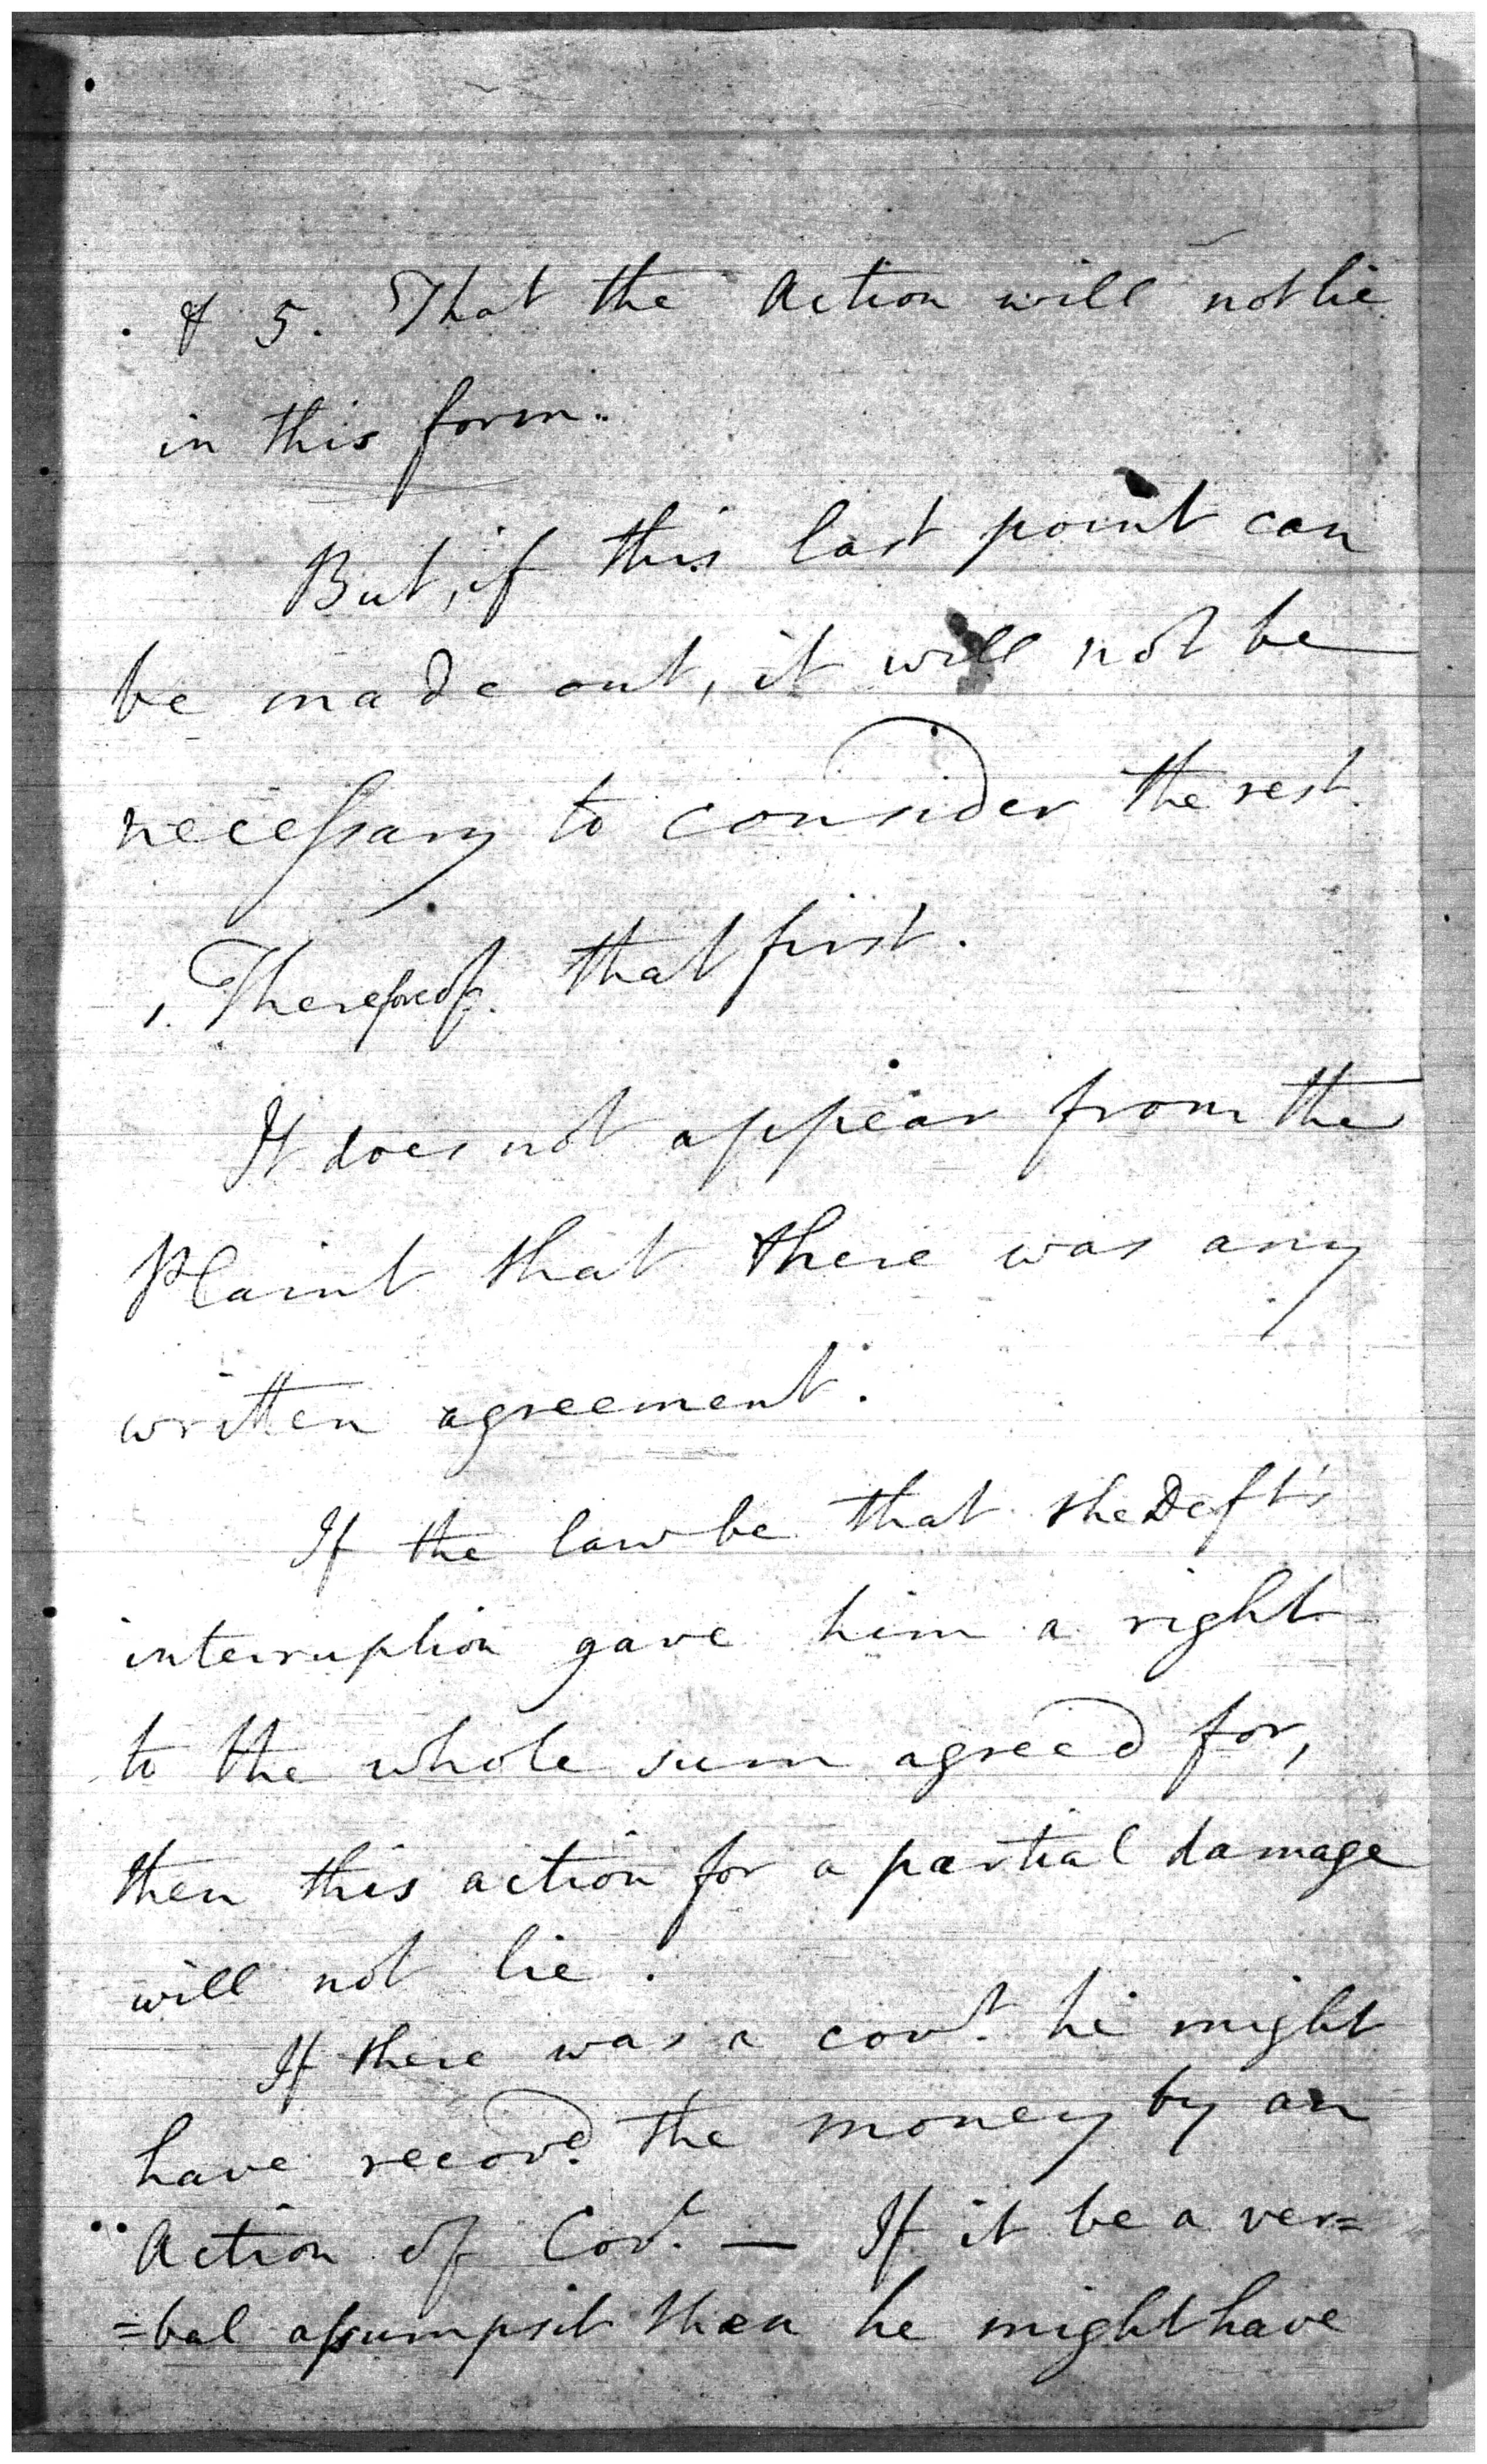 & 5. That the Action will not lie
in this form.
But, if this last point can
be made out, it will not be
necessary to consider the rest.
1. Therefore of that first.
It does not appear from the
Plaint that there was any
written agreement.
If the law be that the Deft's
interruption gave him a right
to the whole sum agreed for,
then this action for a partial damage
will not lie.
If there was a covt. he might
have recovd. the money by an
Action of Covt. — If it be a ver=
=bal assumpsit then he might have